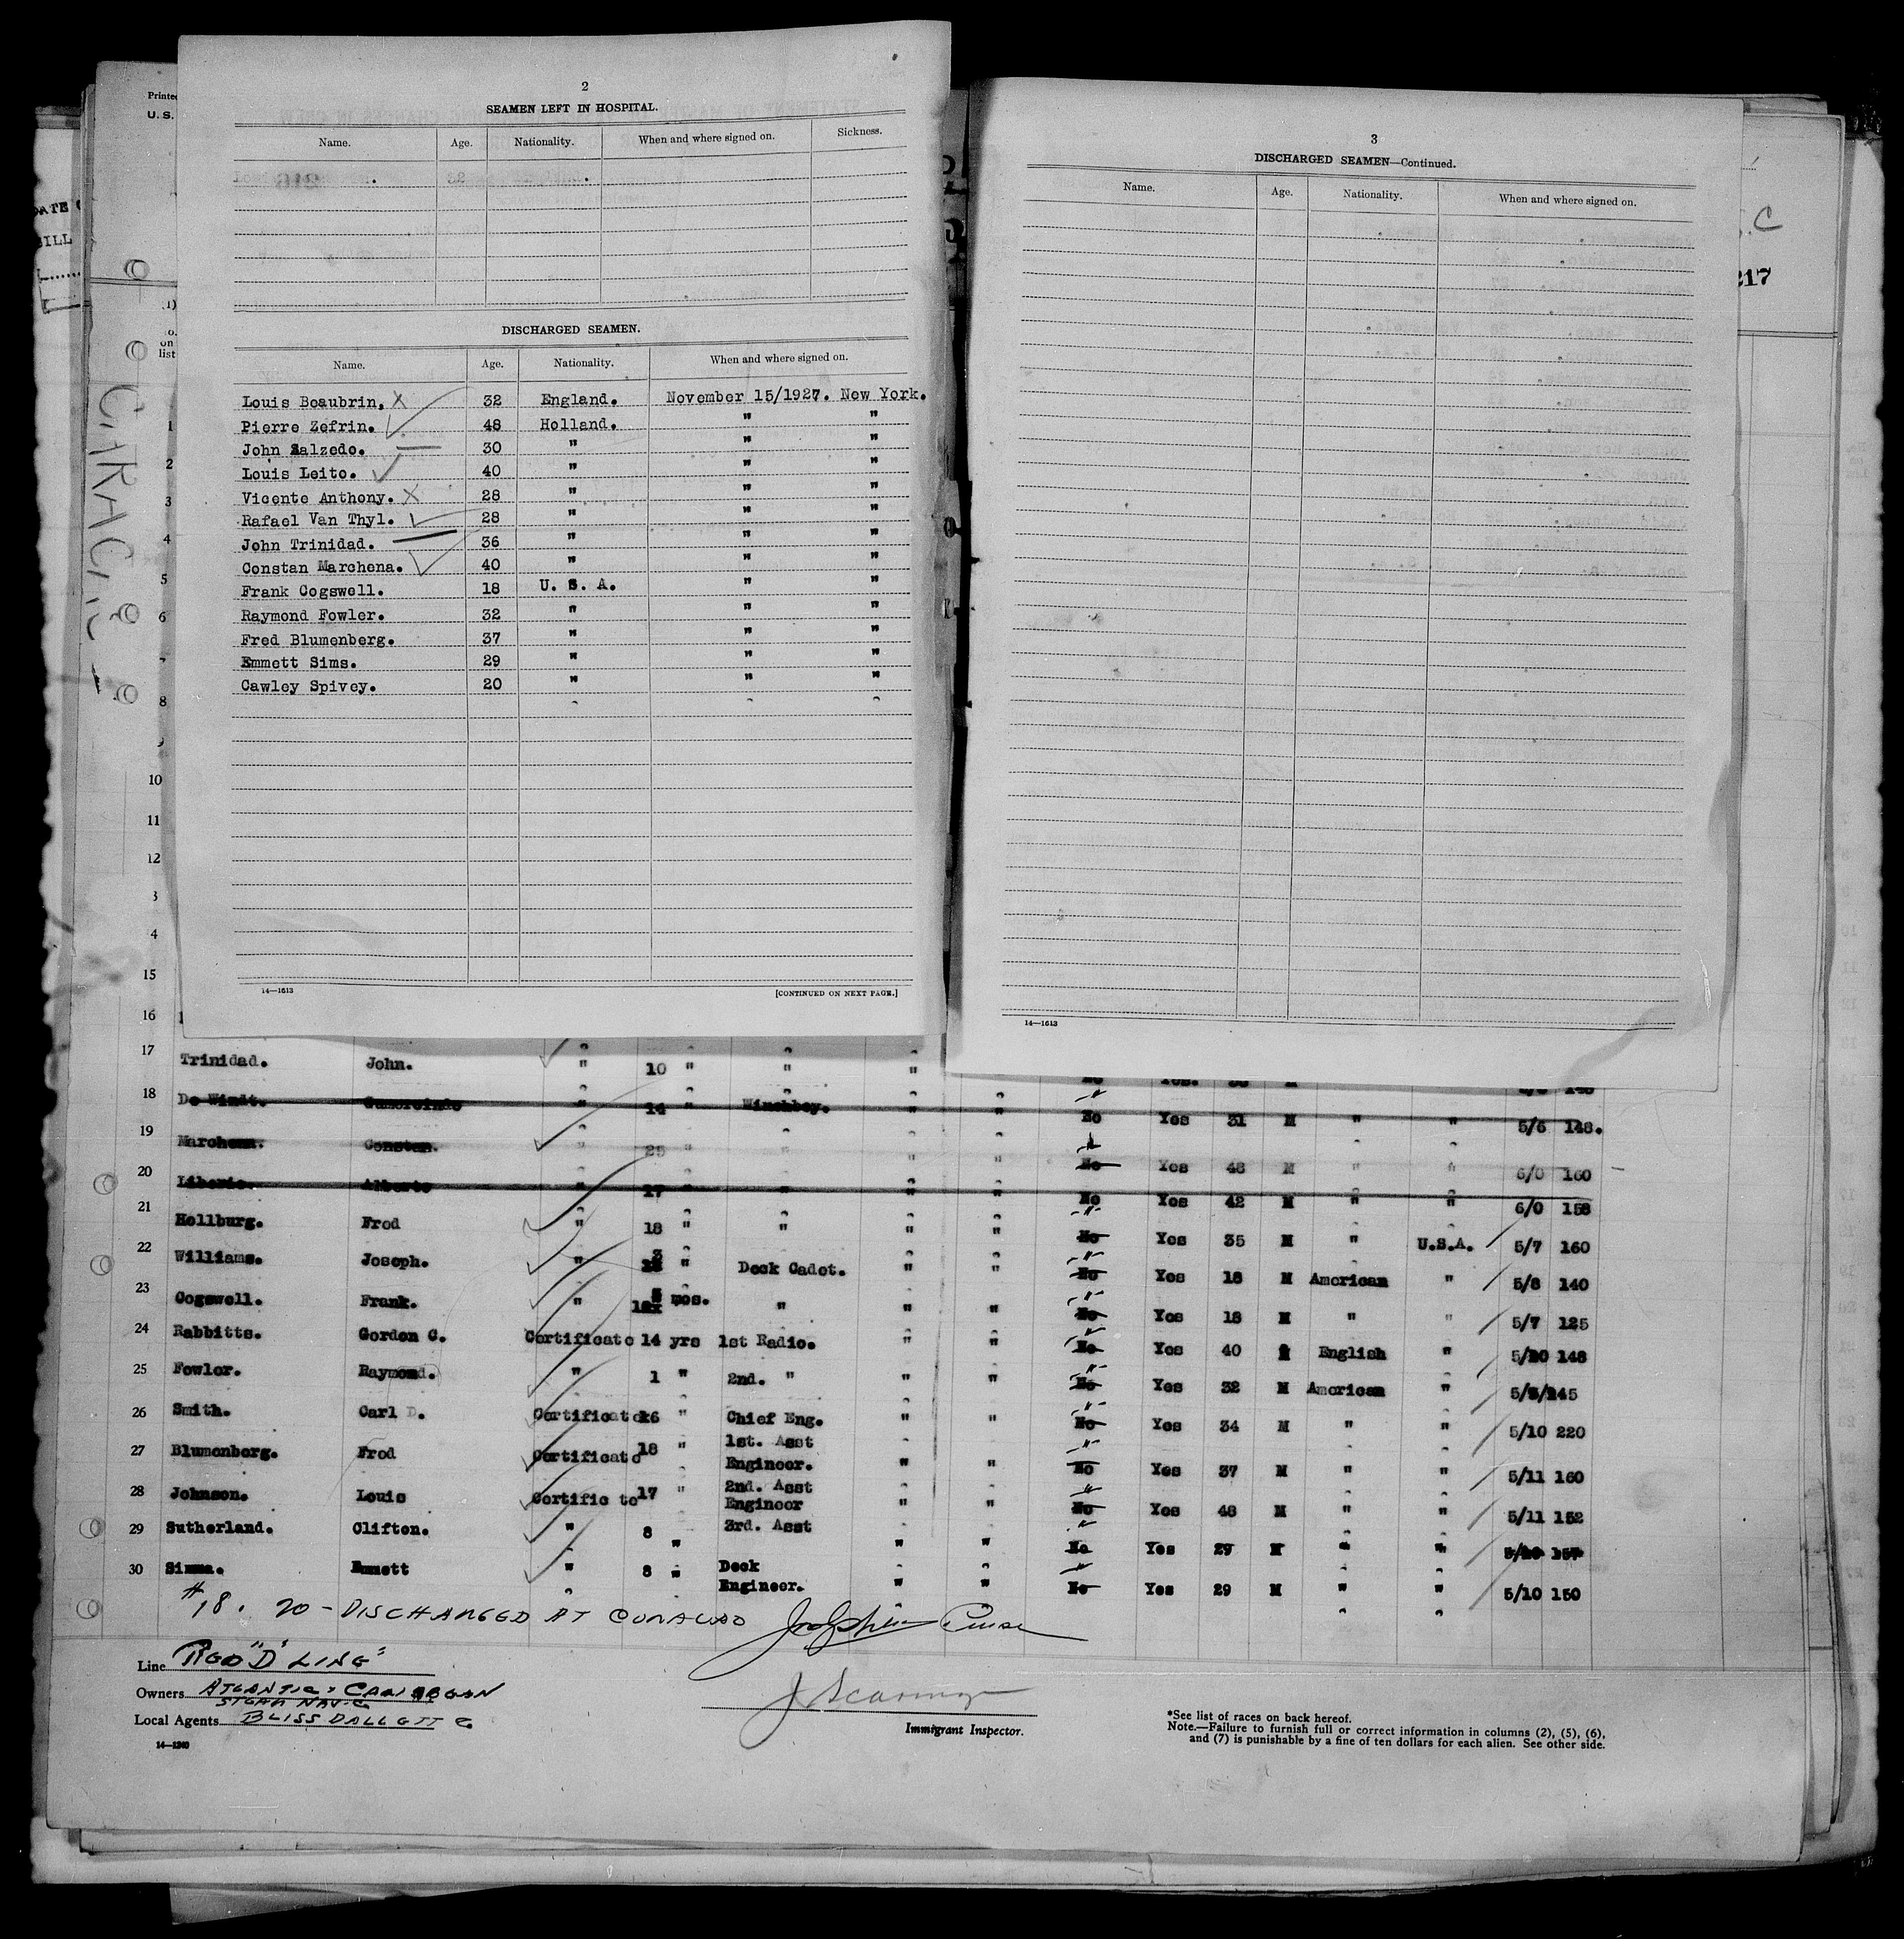 2
SEAMEN LEFT IN HOSPITAL.
Name. Age. Nationality. When and where signed on. Sickness.
DISCHARGED SEAMEN.
Name. Age. Nationality. When and where signed on.
Louis Beaubrin, X 32 England. November 15/1927. New York.
Pierre Zefrin. 48 Holland. " "
John Salzedo. 30 " " "
Louis Leito. 40 " " "
Vicente Anthony. X 28 " " "
Rafael Van Thyl. 28 " " "
John Trinidad. 36 " " "
Constan Marchena. 40 " " "
Frank Cogswell. 18 U. S. A. " "
Raymond Fowler. 32 " " "
Fred Blumenberg. 37 " " "
Emmett Sims. 29 " " "
Cawley Spivey. 20 " " "
14—1613 [CONTINUED ON NEXT PAGE.]
3
DISCHARGED SEAMEN—Continued.
Name. Age. Nationality. When and where signed on.
14—1613
Printed
U. S.
217
list
1
2
3
4
5
6
8
10
11
12
4
15
16
17 Trinidad. John. " 10 " " "
18 De Windt. " 14 " Winchboy. " " No Yes 31 M " " 5/6 148.
19 Marchena. Constan. " 25 " " " " No Yes 48 M " " 6/0 160
20 Liberia. Alberto " 17 " " " " No Yes 42 M " " 6/0 158
21 Hollburg. Fred " 18 " " " " No Yes 35 M " U.S.A. 5/7 160
22 Williams. Joseph. " 3 " Deck Cadet. " " No Yes 18 M American " 5/8 140
23 Cogswell. Frank. " mos. " " " No Yes 18 M " " 5/7 125
24 Rabbitts. Gordon C. Certificate 14 yrs 1st Radio. " " No Yes 40 English " 5/10 148
25 Fowler. Raymond. " 1 " 2nd. " " " No Yes 32 M American "
26 Smith. Carl D. Certificate 16 " Chief Eng. " " No Yes 34 M " " 5/10 220
27 Blumenberg. Fred Certificate 18 " 1st. Asst Engineer. " " No Yes 37 M " " 5/11 160
28 Johnson. Louis Certific te 17 " 2nd. Asst Engineer " " No Yes 48 M " " 5/11 152
29 Sutherland. Clifton. " 8 " 3rd. Asst " " No Yes 29 M " " 5/10 157
30 Simms. Emmett " 8 " Deck Engineer. " " No Yes 29 M " " 5/10 150
#18. 20 - DISCHARGED AT CURACAO
Line RED "D" LINE
Owners ATLANTIC & CARIBBEAN
STEAM NAV. C
Local Agents BLISS DALLETT C
14—1240
Immigrant Inspector.
*See list of races on back hereof.
Note.—Failure to furnish full or correct information in columns (2), (5), (6),
and (7) is punishable by a fine of ten dollars for each alien. See other side.